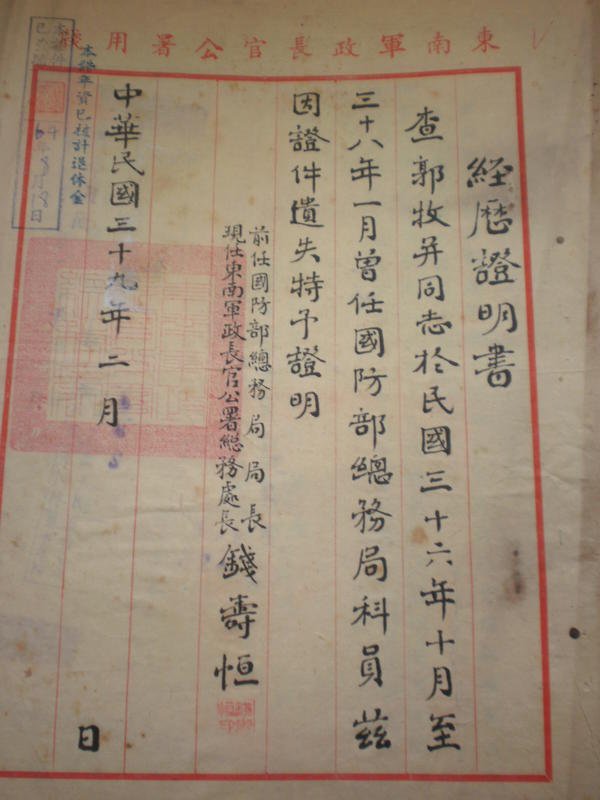 東南軍政長官公署用箋
經歷證明書
查郭牧并同志於民國三十六年十月至
三十八年一月曾任國防部總務局科員茲
因證件遺失特予證明
前任國防部總務局局長
現任東南軍政長官公署總務處長
錢壽恒
中華民國三十九年二月
日
本證年資已核計退休金